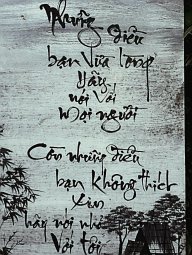 Những
điều
bạn vừa lòng
hãy
nói với
mọi người
Còn những điều
bạn không thích
xin
hãy nói nhỏ
với tôi